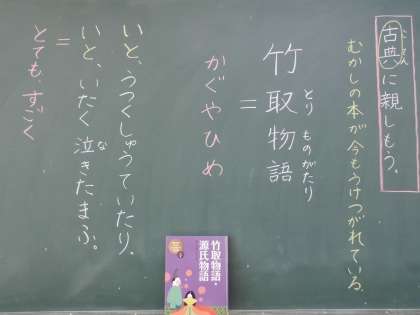 古典に親しもう。
こてん
むかしの本が今もうけつがれている。
竹取物語
とり ものがたり
＝
かぐやひめ
いと、うつくしゅうていたり。
いと、いたく泣きたまふ。
な
＝
とても、すごく
竹取物語・
源氏物語